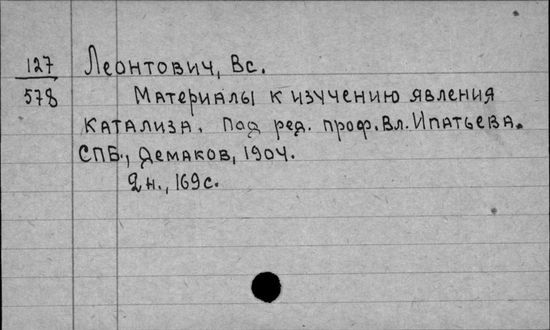 127 Леонтович, Вс.
578 Материалы к изучению явления
катализа. Под ред. проф. Вл. Ипатьева.
СПБ., Демаков, 1904.
2н., 169с.